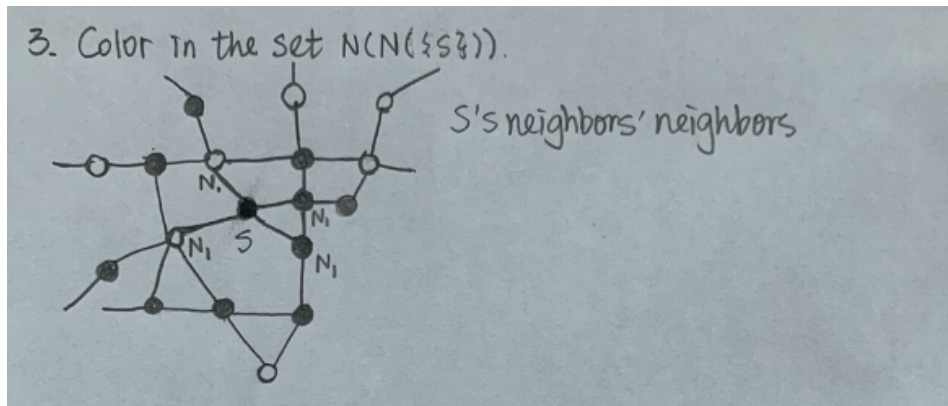 3. Color in the set N(N({S})).
S's neighbors' neighbors
N₁
N₁
S
N₁
N₁